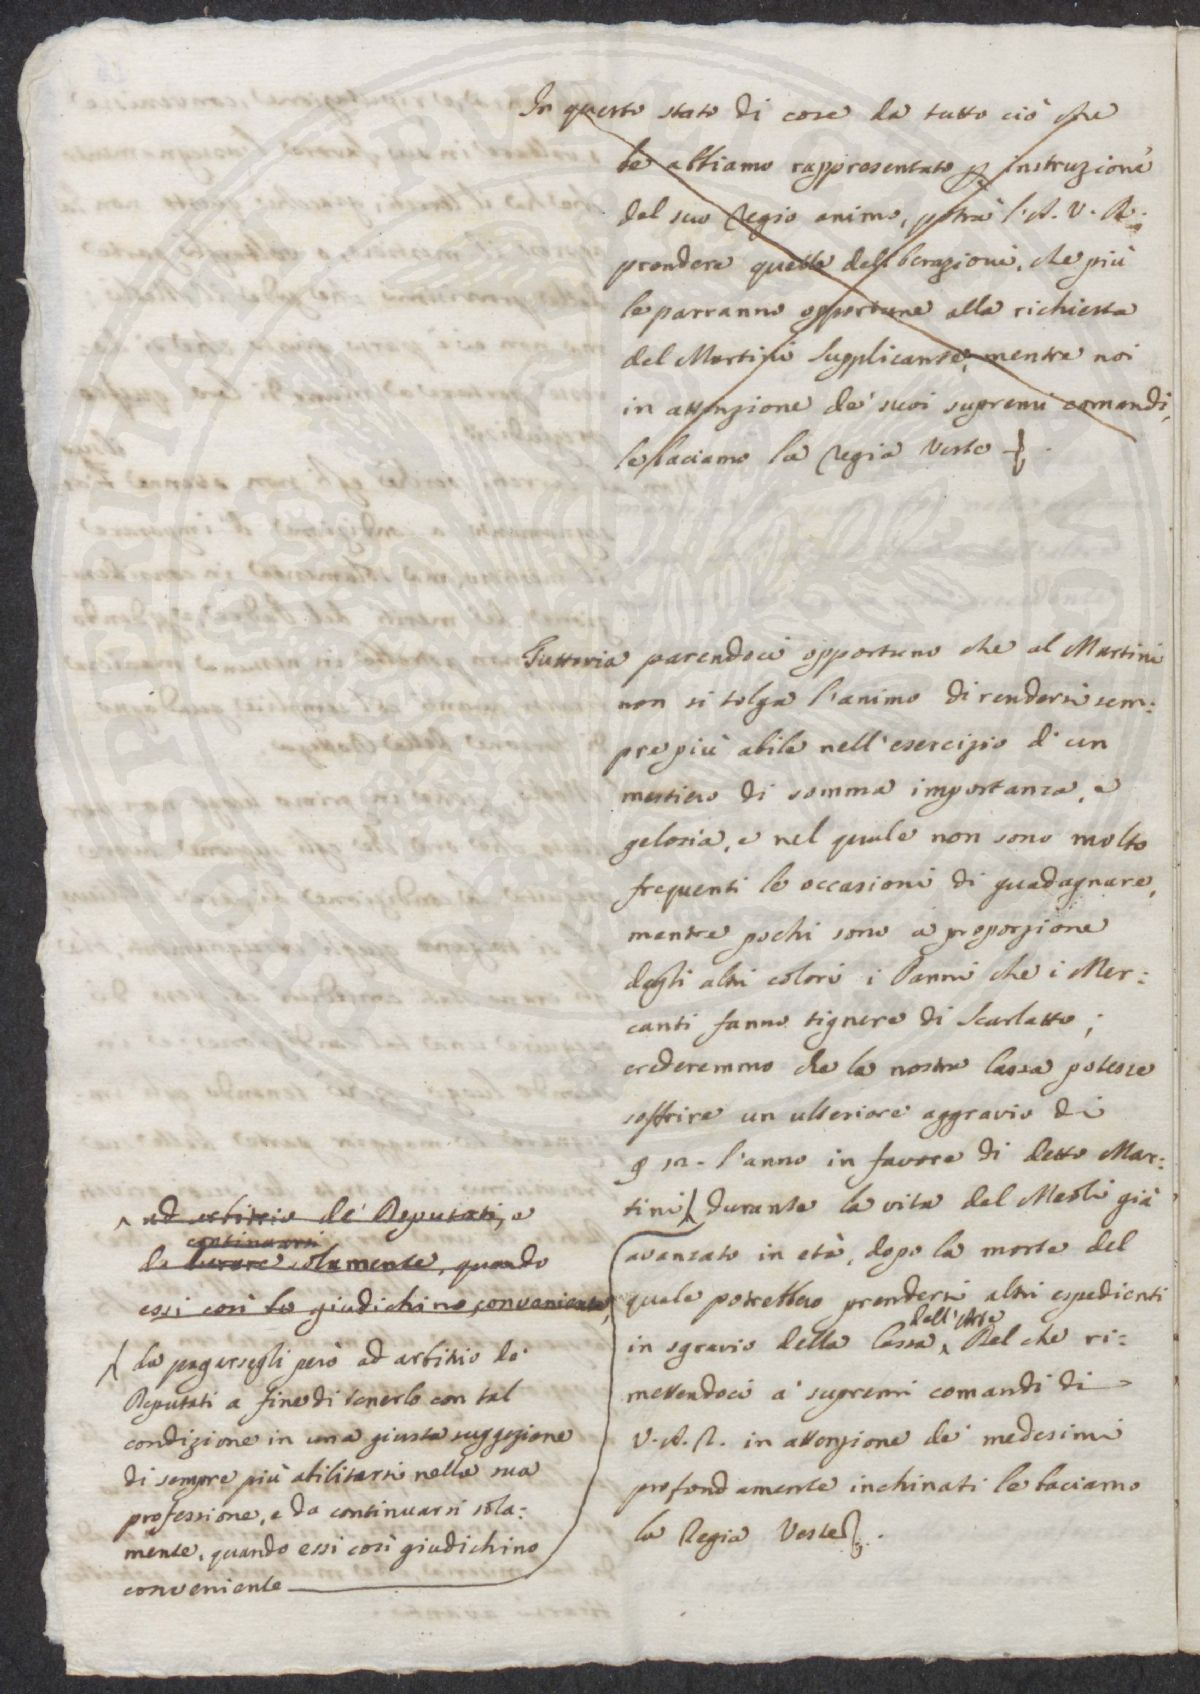 In questo stato di cose da tutto ciò che
le abbiamo rappresentato p instruzione
del suo Regio animo, potrà l'A. V. R.
prendere quelle deliberazioni, che più
le parranno opportune alla richiesta
del Martini Supplicante, mentre noi
in attenzione de' suoi supremi comandi,
le baciamo la Regia Veste
Tuttavia parendoci opportuno che al Martini
non si tolga l'animo di rendersi sem:
pre più abile nell'esercizio d'un
mestiero di somma importanza, e
gelosia, e nel quale non sono molto
frequenti le occasioni di guadagnare,
mentre pochi sono a proporzione
degli altri colori i Panni che i Mer:
canti fanno tignere di Scarlatto;
crederemmo che la nostra Cassa potesse
soffrire un ulteriore aggravio di
l'anno in favore di detto Mar:
tini durante la vita del Meoli già
avanzato in età, dopo la morte del
quale potrebbero prendersi altri espedienti
in sgravio della Cassa dell'Arte, Del che ri:
mettendoci a' supremi comandi di
V. A. R. in attenzione de' medesimi
profondamente inchinati le baciamo
la Regia Veste.
ad arbitrio de' Deputati, e
continuarsi
da durare solamente, quando
essi così lo giudichino conveniente,
da pagarsegli però ad arbitrio de'
Deputati a fine di tenerlo con tal
condizione in una giusta suggezione
di sempre più abilitarsi nella sua
professione, e da continuarsi sola:
mente, quando essi così giudichino
conveniente